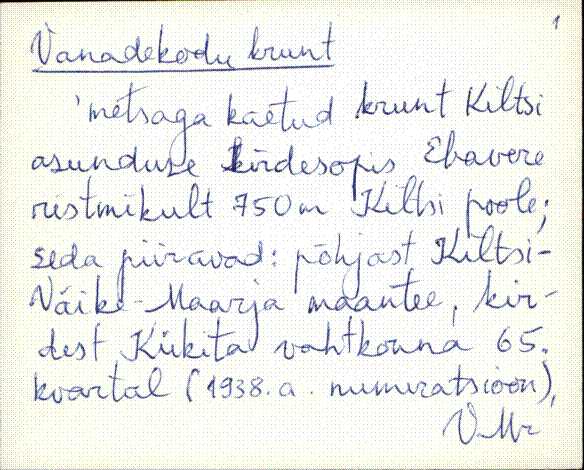 1
Vanadekodu krunt
'metsaga kaetud krunt Kiltsi
asunduse kirdesopis Ebavere
ristmikult 750 m Kiltsi poole;
seda piiravad: põhjast Kiltsi-
Väike-Maarja maantee, kir-
dest Kükita vahtkonna 65.
kvartal (1938. a. numeratsioon),
V. Mr